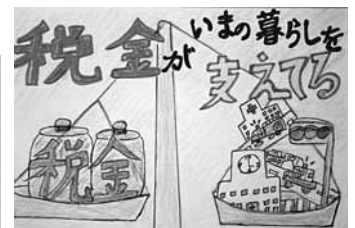 税金が
いまの暮らしを
支えてる
税金